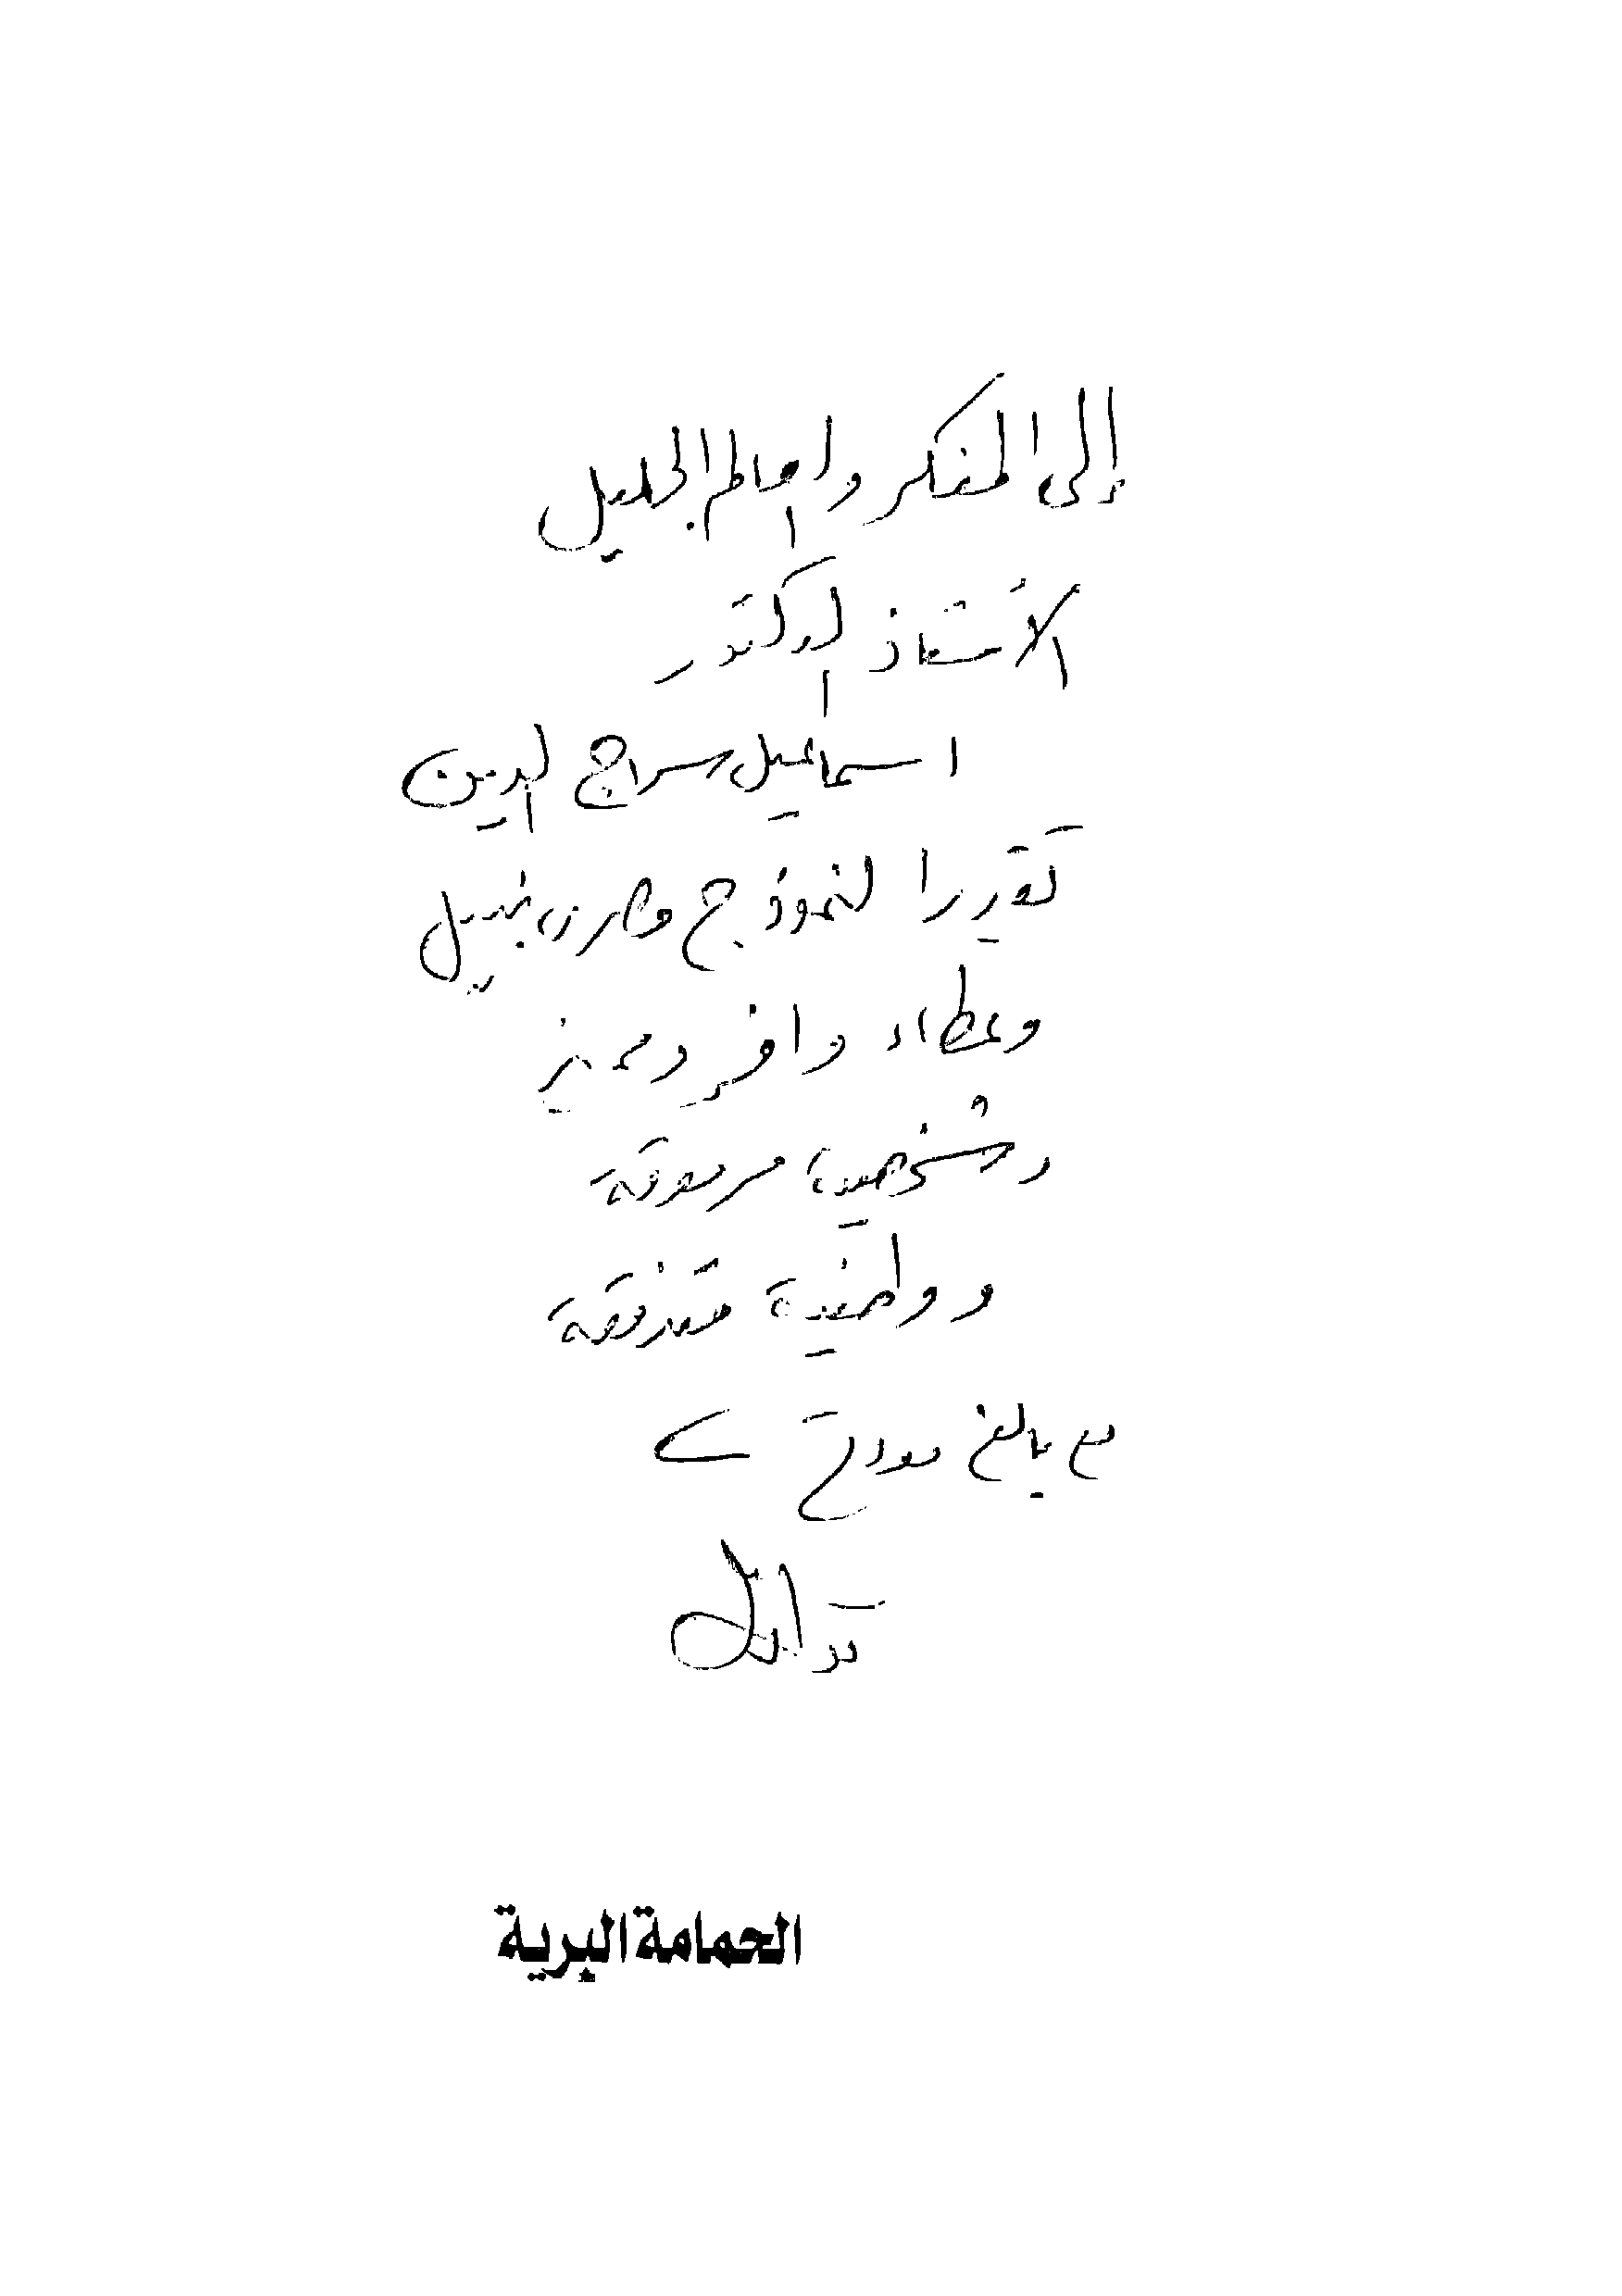 إلى المفكر والعالم الجليل
الأستاذ الدكتور
اسماعيل سراج الدين
تقديرا لنموذج مصرى نبيل
وعطاء وافر ومميز
وشخصية مرموقة
ووطنية متدفقة
مع بالغ مودتى
الحمامة البرية